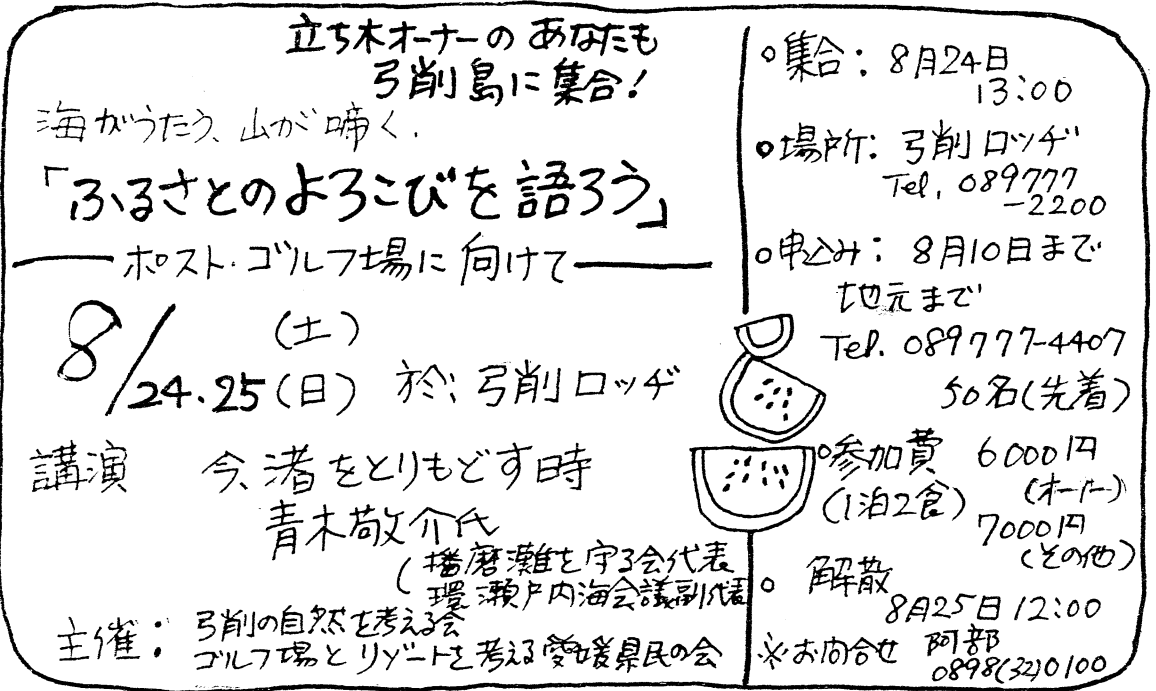 立ち木オーナーのあなたも
弓削島に集合!
海がうたう、山が啼く.
「ふるさとのよろこびを語ろう」
ポスト・ゴルフ場に向けて
8/24.25(土)(日) 於;弓削ロッヂ
講演 今、渚をとりもどす時
青木敬介氏
(播磨灘を守る会代表
環瀬戸内海会議副代表
主催: 弓削の自然を考える会
ゴルフ場とリゾートを考える愛媛県民の会
○集合: 8月24日
13:00
○場所: 弓削ロッヂ
Tel. 089777
-2200
○申込み: 8月10日まで
地元まで
Tel. 089777-4407
50名(先着)
○参加費 6000円
(1泊2食) (オーナー)
7000円
(その他)
○ 解散
8月25日 12:00
※お問合せ 阿部
0898(32)0100